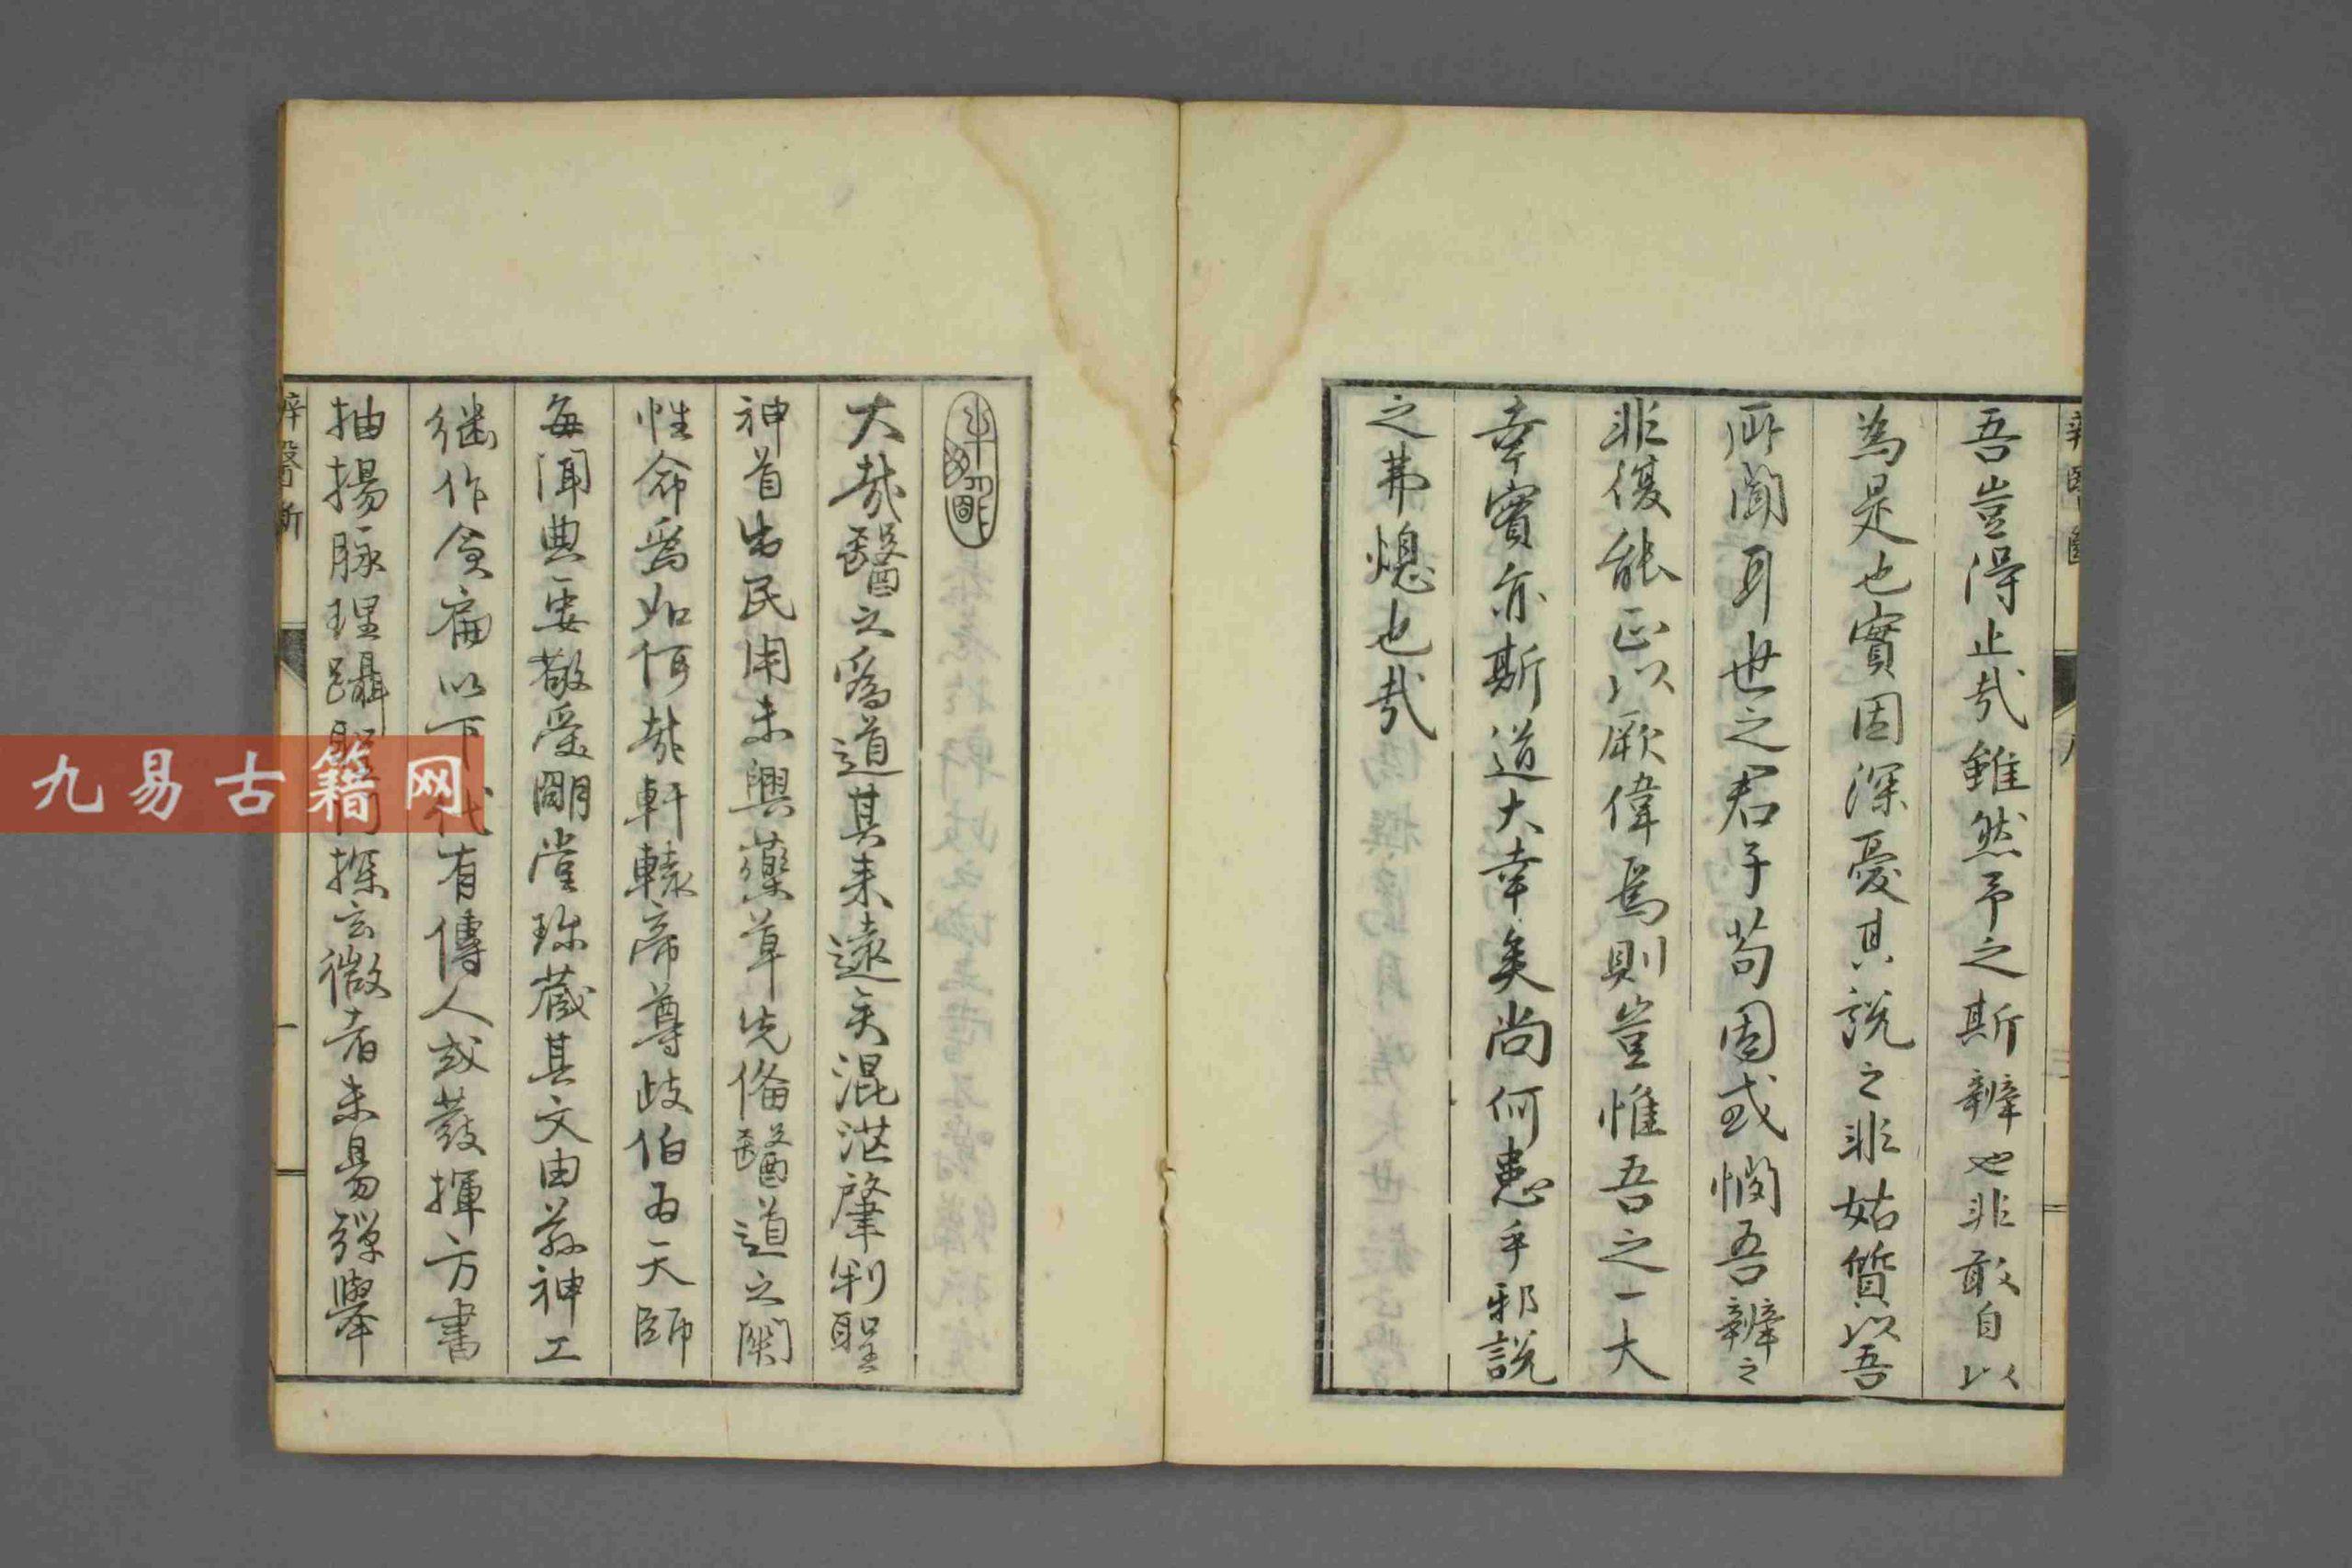 吾豈得止哉雖然予之斯辨也非敢自以
為是也實固深憂其說之非姑質以吾
所聞耳世之君子苟固或憫吾辨之
非復能正以厥偉焉則豈惟吾之一大
幸實亦斯道大幸矣尚何患乎邪說
之弗熄也哉
大哉醫之為道其来遠矣混茫肇判聖
神首出民用未興藥草先俻醫道之関
性命爲如何哉軒轅帝尊歧伯為天師
每聞典要敬受闢堂珎藏其文由茲神工
继作倉扁以下代有傳人或發揮方書
抽揚脉理躡聖探玄微者未易殫舉
辨醫断
九易古籍网